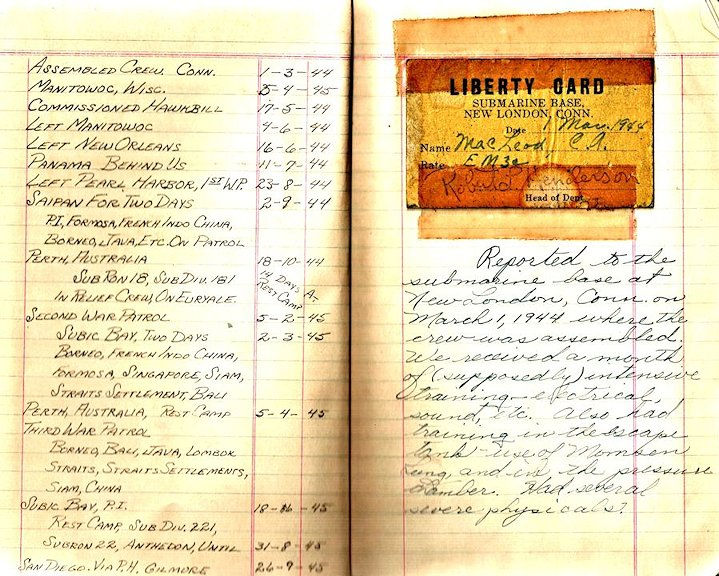 ASSEMBLED CREW. CONN. 1-3-44
MANITOWOC, WISC. 5-4-45
COMMISSIONED HAWKBILL 17-5-44
LEFT MANITOWOC 4-6-44
LEFT NEW ORLEANS 16-6-44
PANAMA BEHIND US 11-7-44
LEFT PEARL HARBOR, 1ST WP. 23-8-44
SAIPAN FOR TWO DAYS 2-9-44
P.I, FORMOSA, FRENCH INDO CHINA,
BORNEO, JAVA, ETC. ON PATROL
PERTH, AUSTRALIA 18-10-44
SUB RON 18, SUB DIV. 181 14 DAYS AT
IN RELIEF CREW, ON EURYALE. REST CAMP
SECOND WAR PATROL 5-2-45
SUBIC BAY, TWO DAYS 2-3-45
BORNEO, FRENCH INDO CHINA,
FORMOSA, SINGAPORE, SIAM,
STRAITS SETTLEMENT, BALI
PERTH, AUSTRALIA, REST CAMP 5-4-45
THIRD WAR PATROL
BORNEO, BALI, JAVA, LOMBOK
STRAITS, STRAITS SETTLEMENTS,
SIAM, CHINA
SUBIC BAY, P.I. 18-6-45
REST CAMP, SUB DIV. 221,
SUBRON 22, ANTHEDON, UNTIL 31-8-45
SAN DIEGO. VIA P.H. GILMORE 26-9-45
LIBERTY CARD
SUBMARINE BASE,
NEW LONDON, CONN.
Date 1 Mar, 1944
Name MacLeod, C.A.
Rate EM3c
Robert Henderson
Head of Dept.
Reported to the
submarine base at
New London, Conn. on
March 1, 1944 where the
crew was assembled.
We received a month
of (supposedly) intensive
training - electrical,
sound, etc. Also had
training in the escape
tank - use of Momsen
Lung, and in the pressure
chamber. Had several
severe physicals.